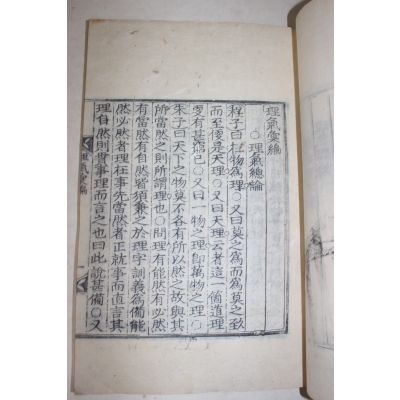 理氣彙編
○理氣總論
程子曰在物爲理○又曰莫之爲而爲莫之致
而至便是天理○又曰天理云者這一箇道理
更有甚窮已○又曰一物之理即萬物之理○
朱子曰天下之物莫不各有所以然之故與其
所當然之則所謂理也○問理有能然有必然
有當然有自然皆須兼之於理字訓義爲備能
然必然者理在事先當然者正就事而直言其
理自然則貫事理而言之也曰此說甚備○又
理氣彙編
一